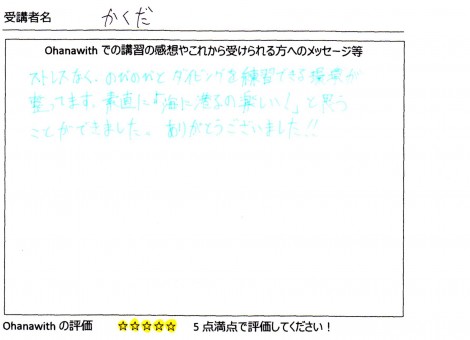 受講者名 かくだ
Ohanawith での講習の感想やこれから受けられる方へのメッセージ等
ストレスなく、のびのびと ダイビングを練習できる環境が
整ってます。素直に「海に潜るの楽しい!」と思う
ことができました。ありがとうございました!!
Ohanawith の評価 ☆☆☆☆☆ 5点満点で評価してください!